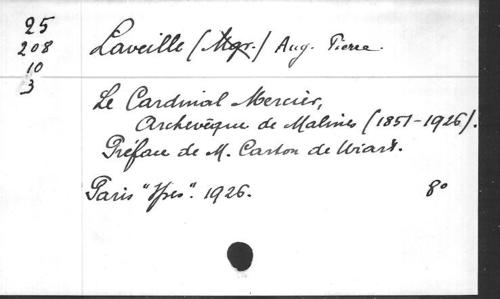 25
208
10
3
Laveille (Mgr.) Aug. Pierre.
Le Cardinal Mercier,
Archevêque de Malines (1851-1926).
Préface de M. Carton de Wiart.
Paris "Spes". 1926. 8°